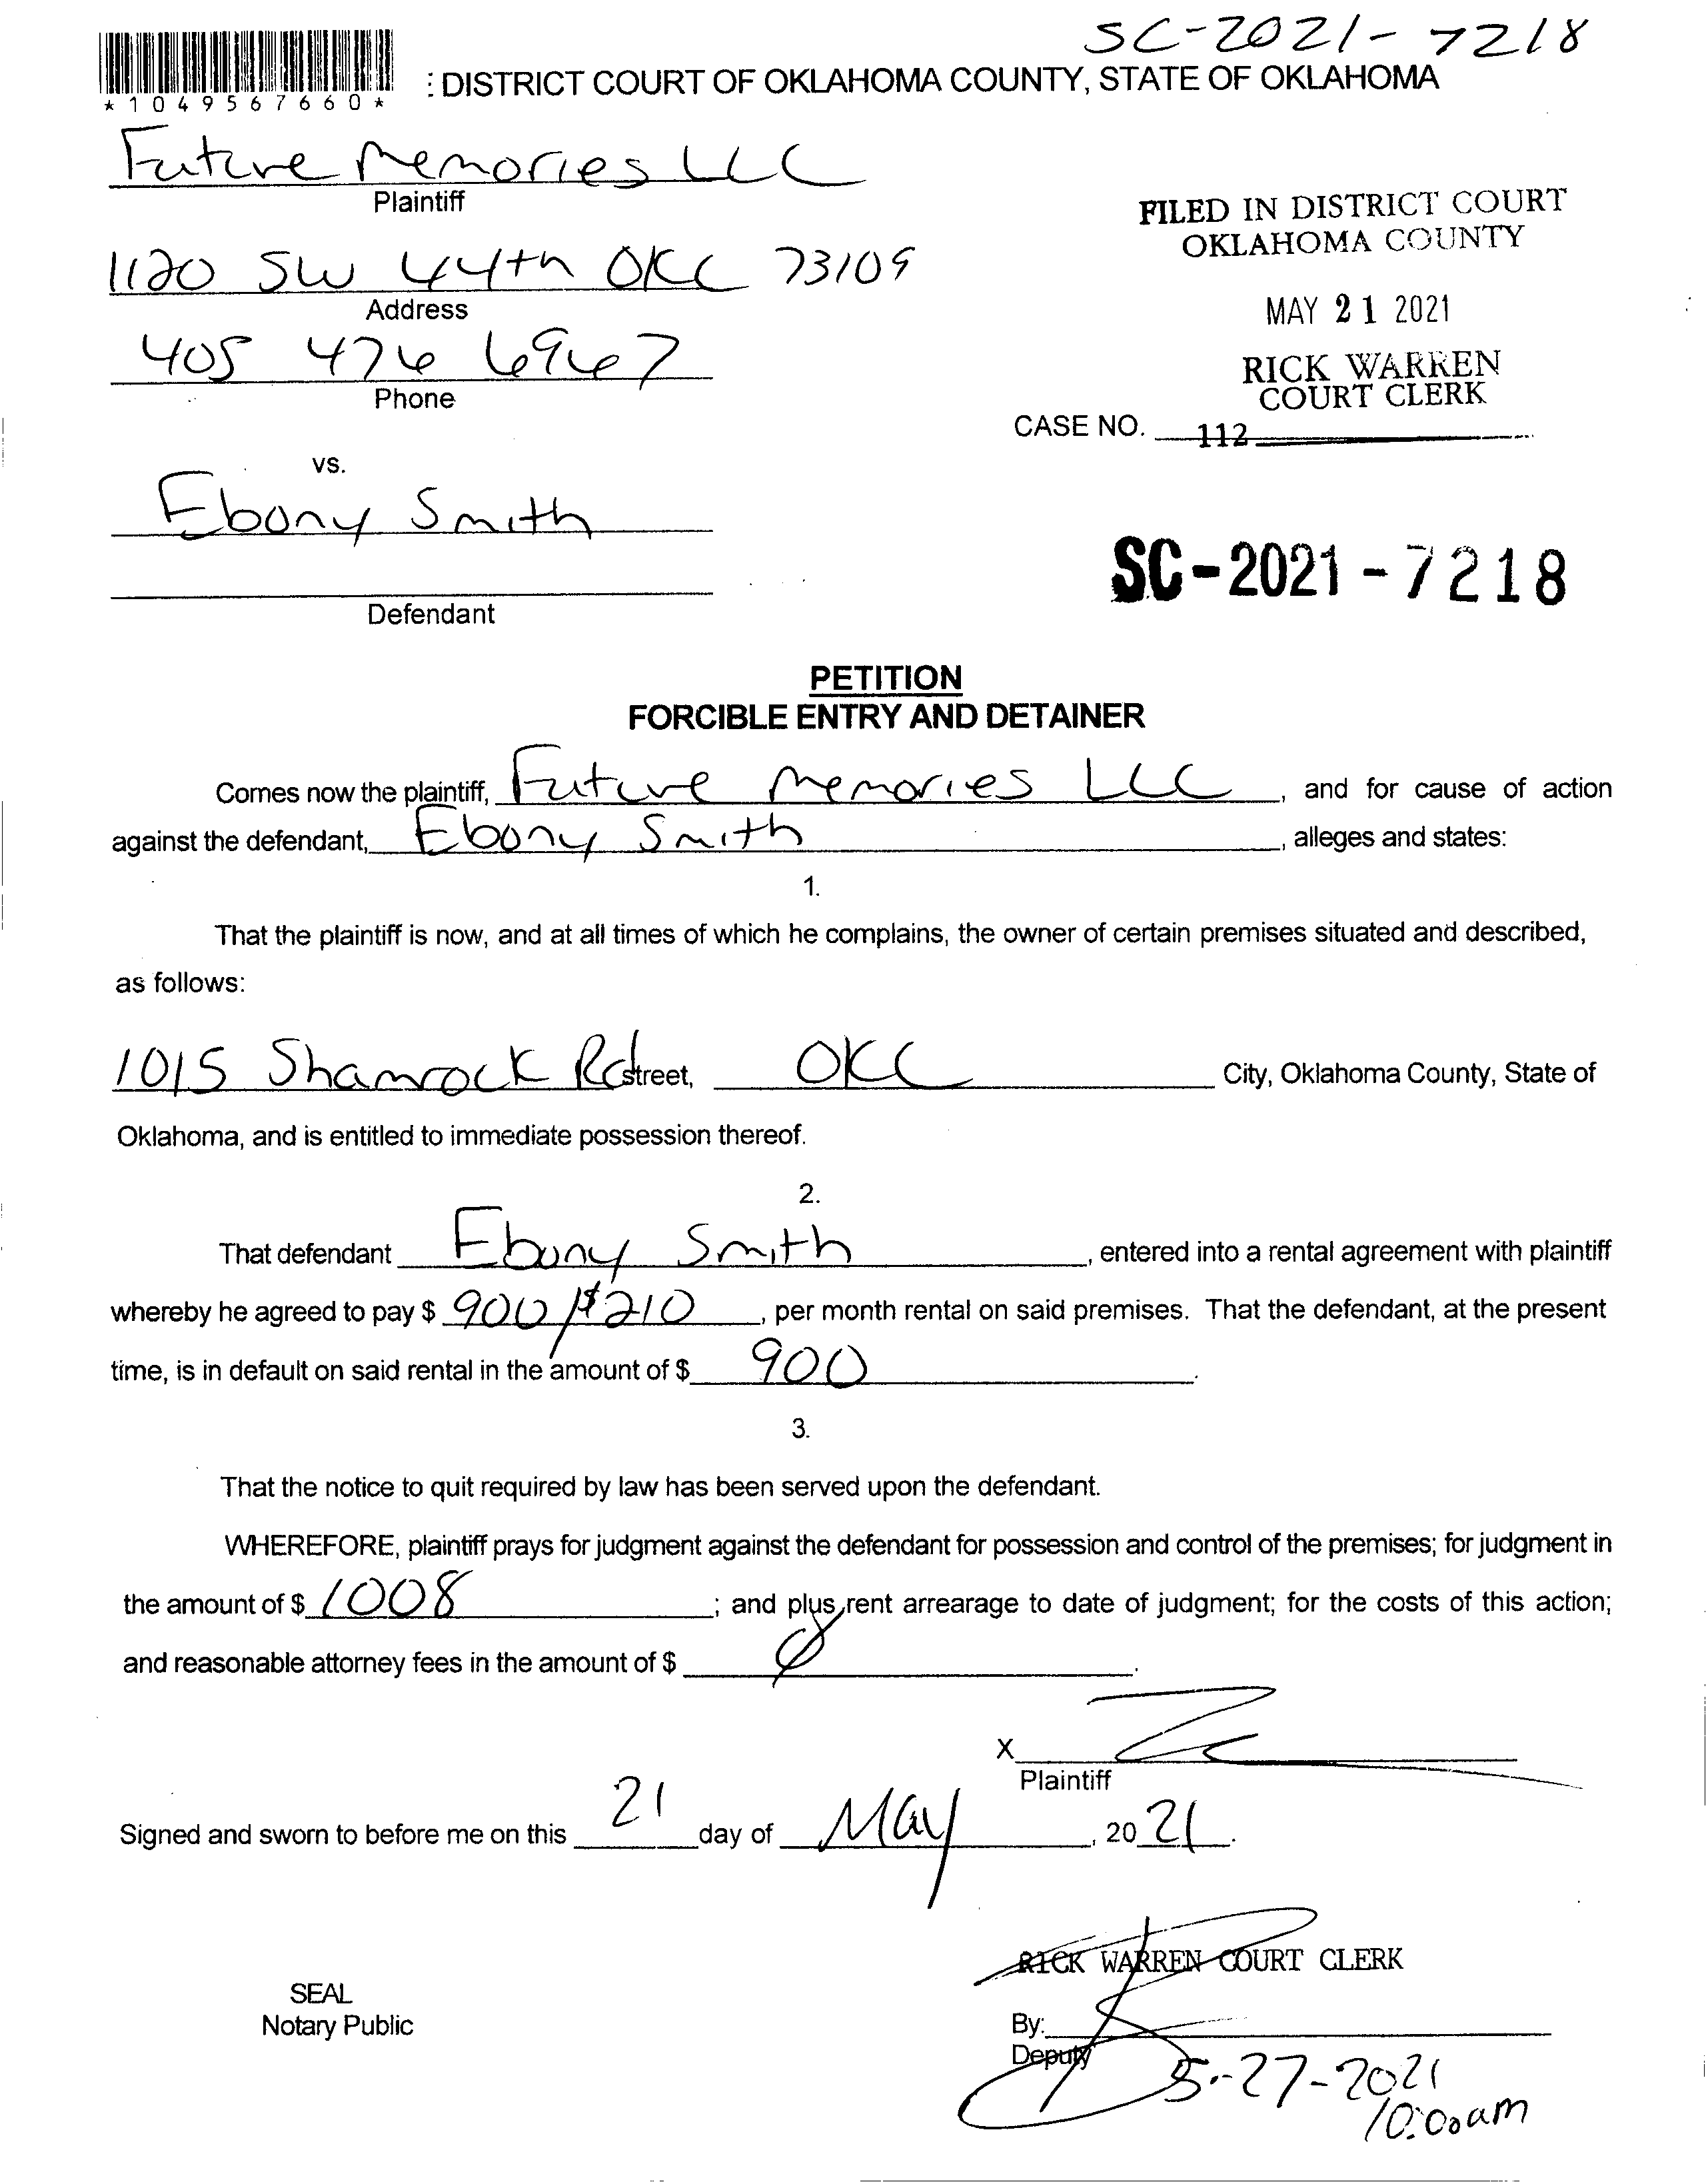 SC-2021-7218
*1049567660*
: DISTRICT COURT OF OKLAHOMA COUNTY, STATE OF OKLAHOMA
Future Memories LLC
Plaintiff
1120 SW 44th OKC 73109
Address
405 476 6967
Phone
FILED IN DISTRICT COURT
OKLAHOMA COUNTY
MAY 21 2021
RICK WARREN
COURT CLERK
CASE NO. 112
vs.
Ebony Smith
Defendant
SC-2021-7218
PETITION
FORCIBLE ENTRY AND DETAINER
Comes now the plaintiff, Future Memories LLC, and for cause of action
against the defendant, Ebony Smith, alleges and states:
1.
That the plaintiff is now, and at all times of which he complains, the owner of certain premises situated and described,
as follows:
1015 Shamrock Rd street, OKC City, Oklahoma County, State of
Oklahoma, and is entitled to immediate possession thereof.
2.
That defendant Ebony Smith, entered into a rental agreement with plaintiff
whereby he agreed to pay $ 900/$210, per month rental on said premises. That the defendant, at the present
time, is in default on said rental in the amount of $ 900.
3.
That the notice to quit required by law has been served upon the defendant.
WHEREFORE, plaintiff prays for judgment against the defendant for possession and control of the premises; for judgment in
the amount of $ 1008; and plus rent arrearage to date of judgment; for the costs of this action;
and reasonable attorney fees in the amount of $ Ø.
X
Plaintiff
Signed and sworn to before me on this 21 day of May, 2021.
RICK WARREN COURT CLERK
SEAL
Notary Public
By:
Deputy
5-27-2021
10:00am